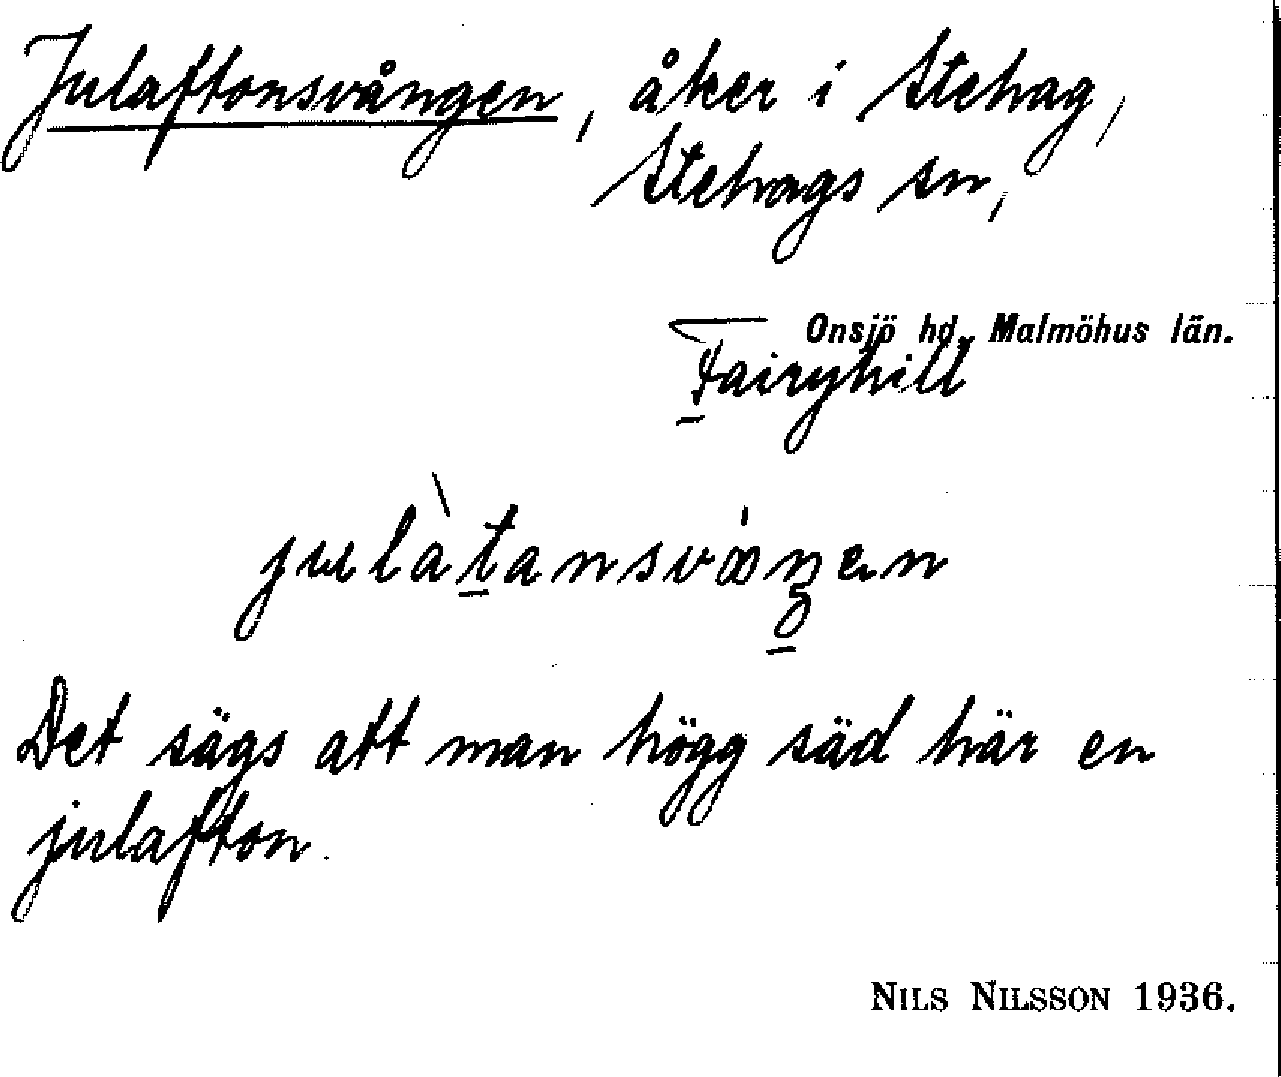 Julaftonsvången, åker i Stehag,
Stehags sn,
Onsjö hd, Malmöhus län.
Fairyhill
julàtansvåŋen
Det sägs att man högg säd här en
julafton.
NILS NILSSON 1936.